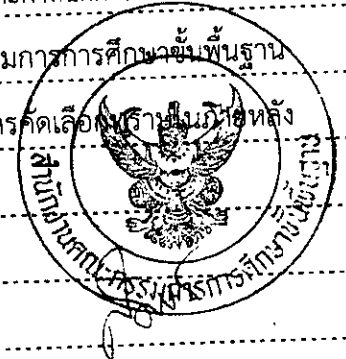 มการการศึกษาขั้นพื้นฐาน
รคัดเลือกทราบในภายหลัง
สำนักงานคณะกรรมการการศึกษาขั้นพื้นฐาน